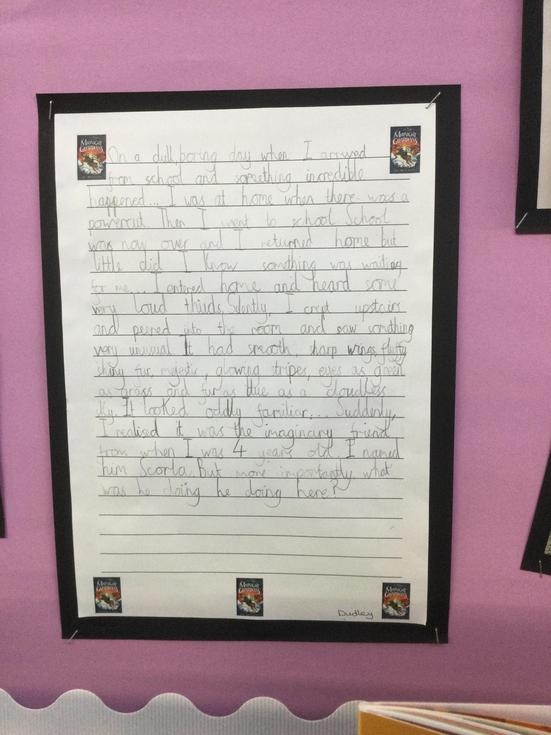 On a dull boring day when I arrived
from school and something incredible
happened... I was at home when there was a
powercut. Then I went to school. School
was now over and I returned home but
little did I know something was waiting
for me... I entered home and heard some
very loud thuds. Silently, I crept upstairs
and peered into the room and saw somthing
very unusual. It had smooth, sharp wings, fluffy
shiny fur, majestic, glowing stripes, eyes as green
as grass and fur as blue as a cloudless
sky. It looked oddly familiar... Suddenly,
I realised it was the imaginary friend
from when I was 4 years old. I named
him Scorla. But more importantly what
was he doing he doing here?
Dudley